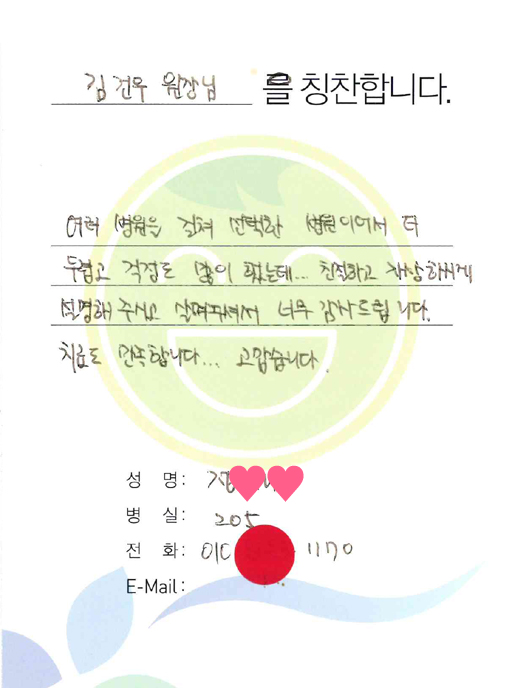 김건우 원장님 을 칭찬합니다.
여러 병원을 거쳐 선택한 병원이여서 더
두렵고 걱정도 많이 했는데... 친절하고 자상하시게
설명해 주시고 살펴주셔서 너무 감사드립니다.
치료도 만족합니다... 고맙습니다.
성 명:
병 실: 205
전 화: 010 1170
E-Mail: